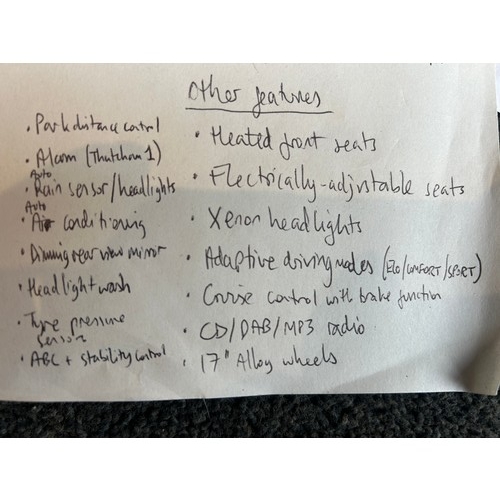 Other features
• Park distance control
• Alarm (Thatcham 1)
Auto
• Rain sensor/headlights
Auto
• Air conditioning
• Dimming rear view mirror
• Headlight wash
• Tyre pressure
sensors
• ABC + stability control
• Heated front seats
• Electrically-adjustable seats
• Xenon headlights
• Adaptive driving modes (ECO/COMFORT/SPORT)
• Cruise control with brake function
• CD/DAB/MP3 radio
• 17" Alloy wheels